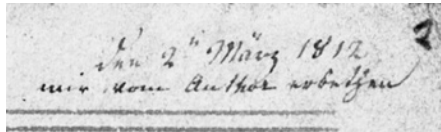 2
den 2ⁿ März 1812
mir vom Author erbethen